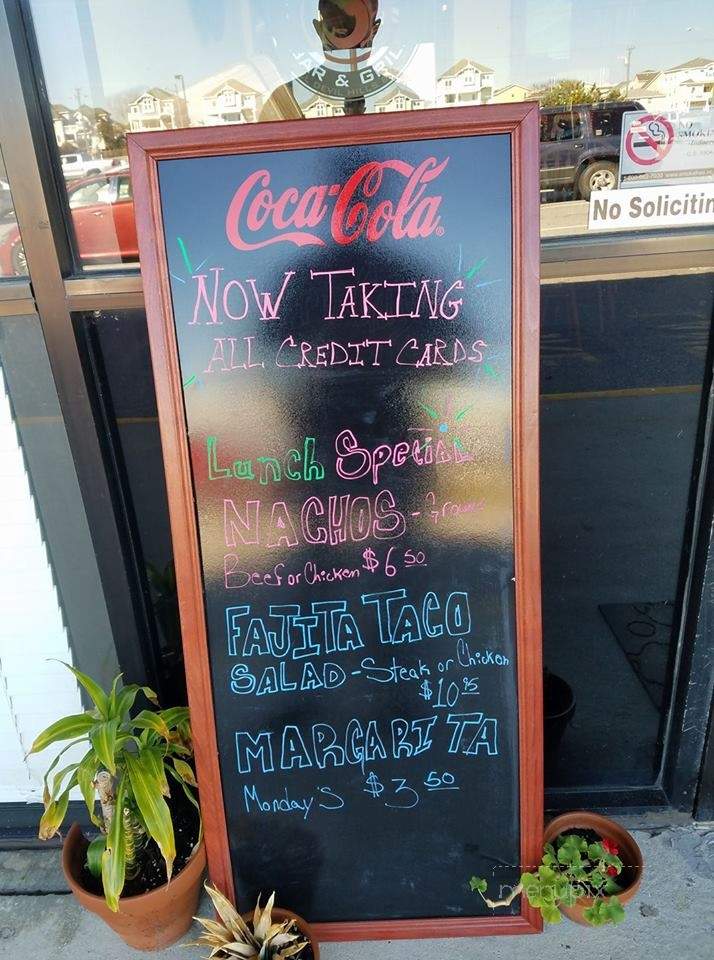 BAR & GRILL
DEVIL HILLS
NO SMOKING
No Soliciting
Coca-Cola
NOW TAKING
ALL CREDIT CARDS
Lunch Special
NACHOS - Ground
Beef or Chicken $6 50
FAJITA TACO
SALAD - Steak or Chicken
$10 95
MARGARITA
Monday's $3 50
menupix